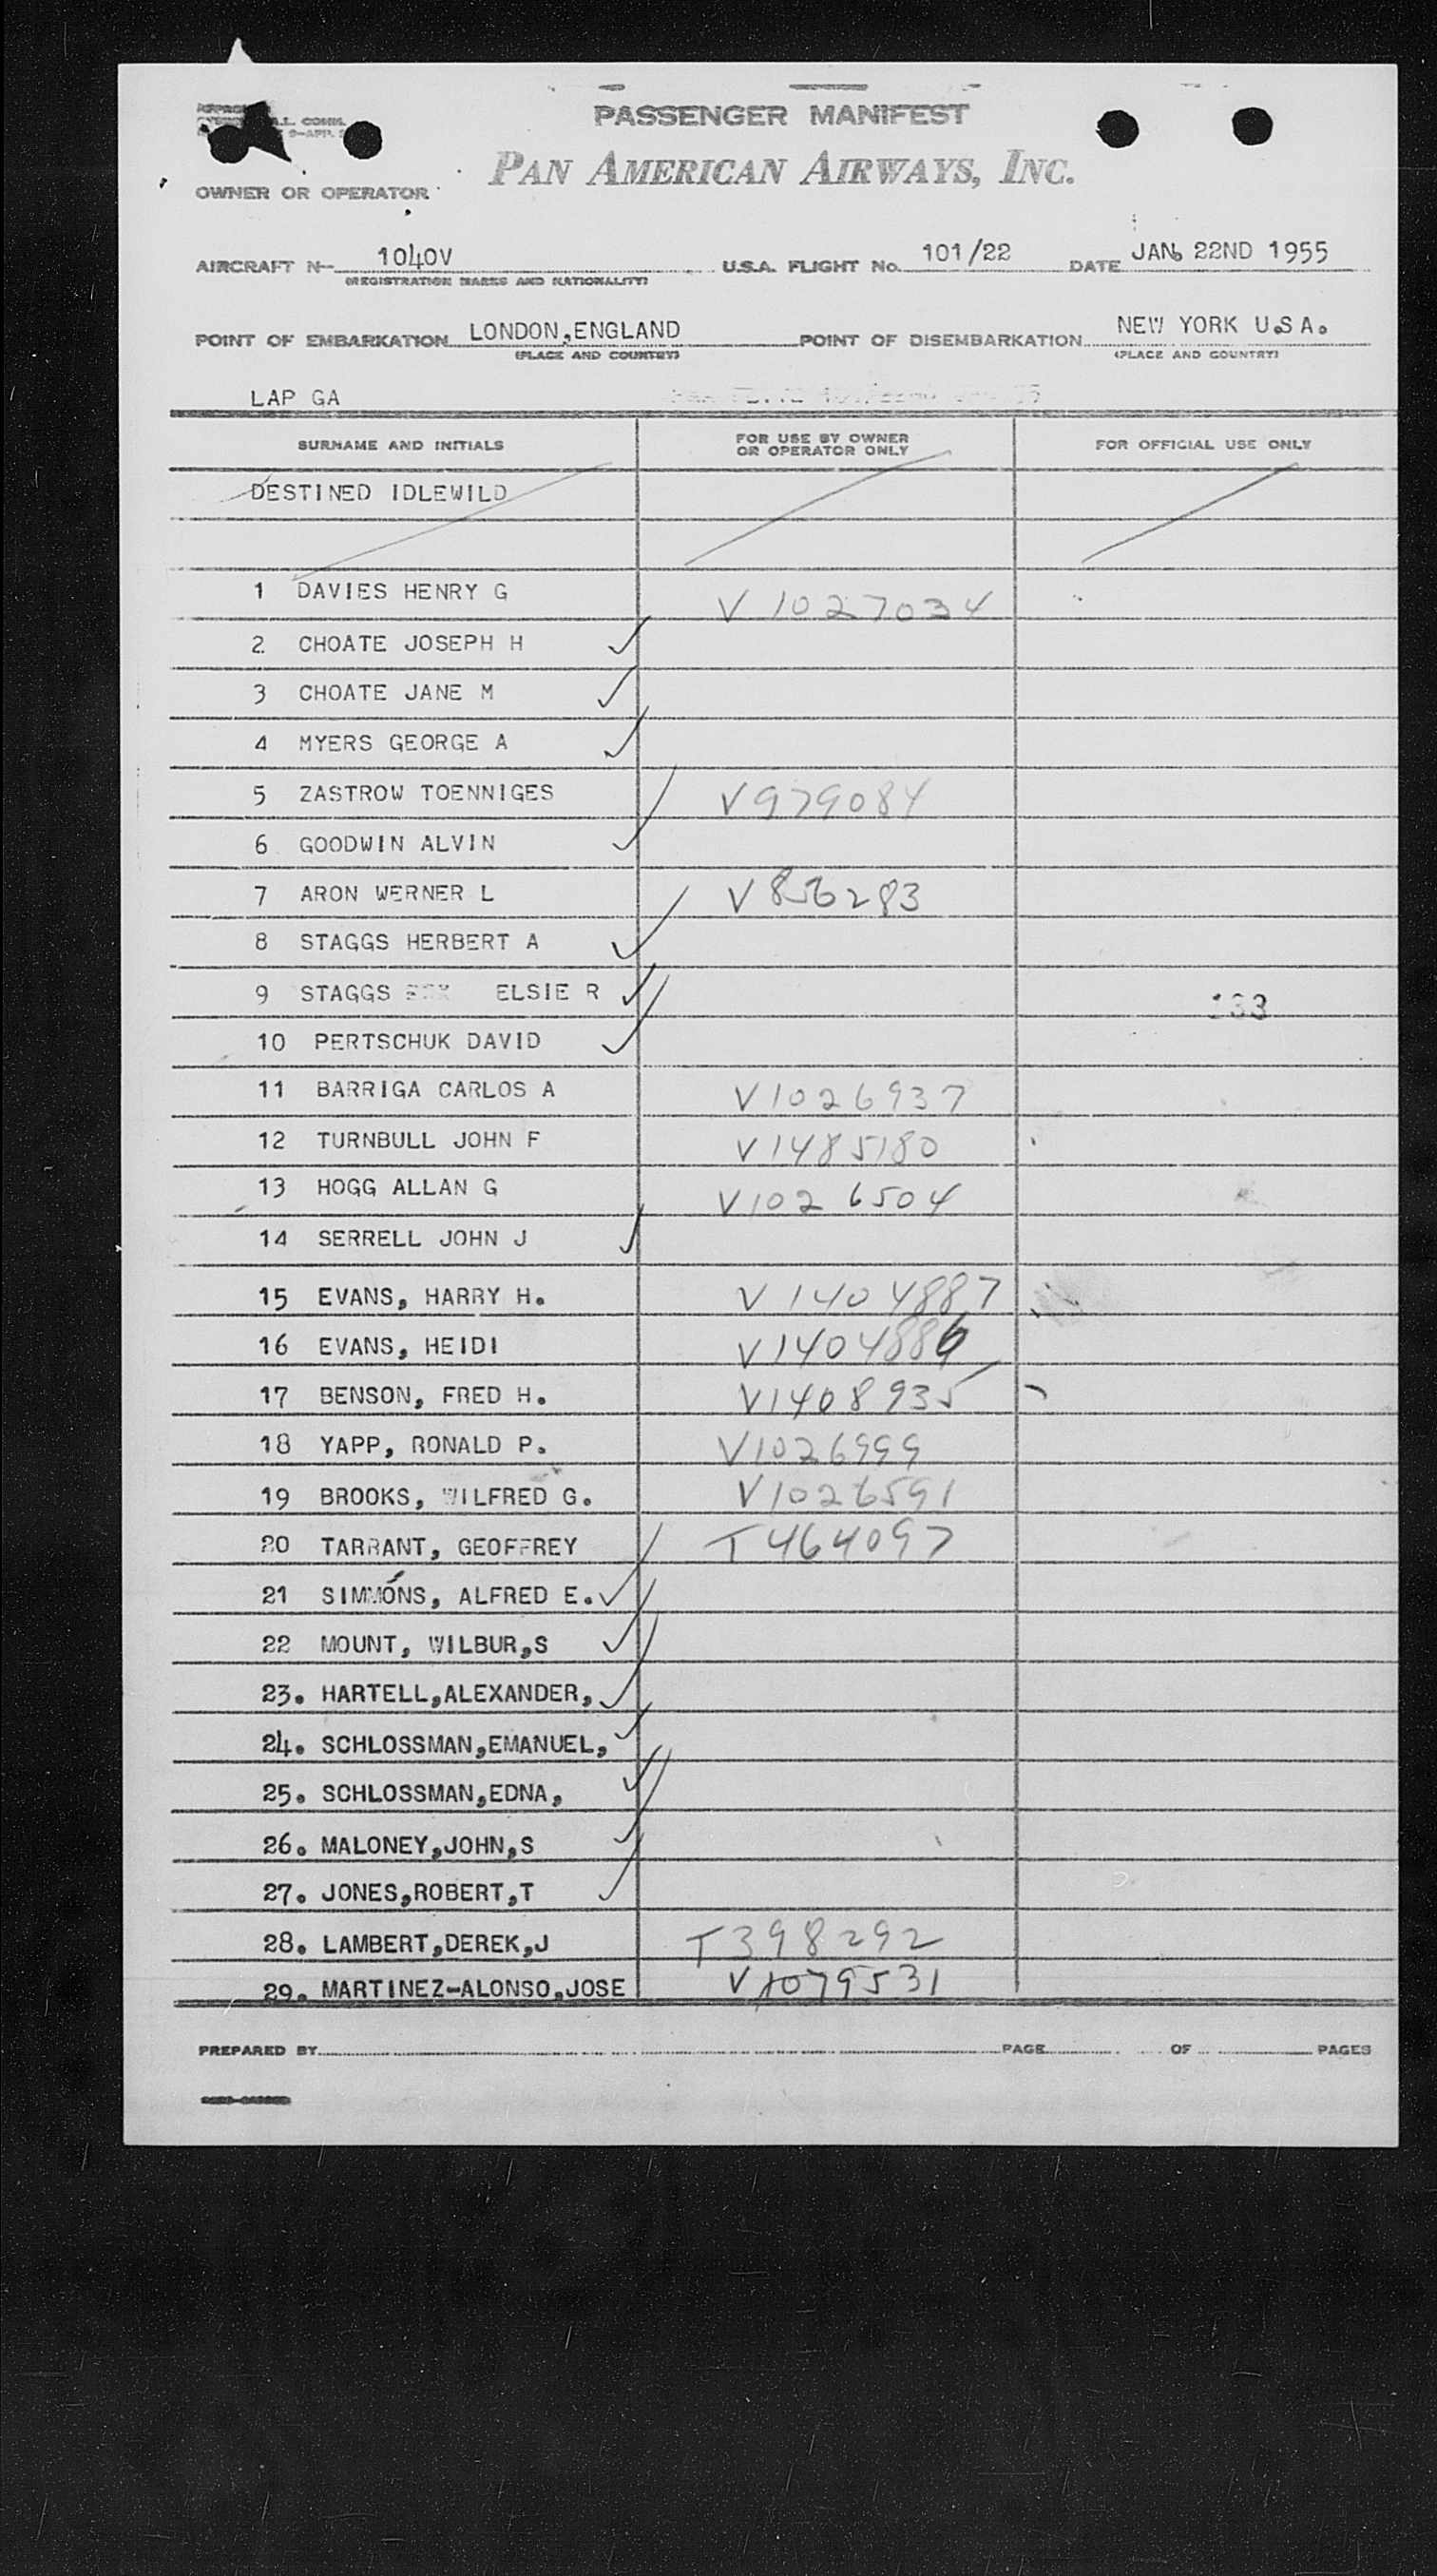 PASSENGER MANIFEST
PAN AMERICAN AIRWAYS, INC.
OWNER OR OPERATOR
AIRCRAFT N— 1040V U.S.A. FLIGHT No. 101/22 DATE JAN. 22ND 1955
(REGISTRATION MARKS AND NATIONALITY)
POINT OF EMBARKATION LONDON,ENGLAND POINT OF DISEMBARKATION NEW YORK U.S A.
(PLACE AND COUNTRY) (PLACE AND COUNTRY)
LAP GA
SURNAME AND INITIALS FOR USE BY OWNER OR OPERATOR ONLY FOR OFFICIAL USE ONLY
DESTINED IDLEWILD
1 DAVIES HENRY G V 1027034
2 CHOATE JOSEPH H ✓
3 CHOATE JANE M ✓
4 MYERS GEORGE A ✓
5 ZASTROW TOENNIGES V979084
6 GOODWIN ALVIN ✓
7 ARON WERNER L V856283
8 STAGGS HERBERT A ✓
9 STAGGS ELSIE R ✓ 133
10 PERTSCHUK DAVID ✓
11 BARRIGA CARLOS A V1026937
12 TURNBULL JOHN F V1485180
13 HOGG ALLAN G V1026504
14 SERRELL JOHN J ✓
15 EVANS, HARRY H. V1404887
16 EVANS, HEIDI V1404886
17 BENSON, FRED H. V1408935
18 YAPP, RONALD P. V1026999
19 BROOKS, WILFRED G. V1026591
20 TARRANT, GEOFFREY T464097
21 SIMMONS, ALFRED E. ✓
22 MOUNT, WILBUR,S ✓
23. HARTELL,ALEXANDER, ✓
24. SCHLOSSMAN,EMANUEL, ✓
25. SCHLOSSMAN,EDNA, ✓
26. MALONEY,JOHN,S ✓
27. JONES,ROBERT,T ✓
28. LAMBERT,DEREK,J T398292
29. MARTINEZ-ALONSO,JOSE V1079531
PREPARED BY PAGE OF PAGES